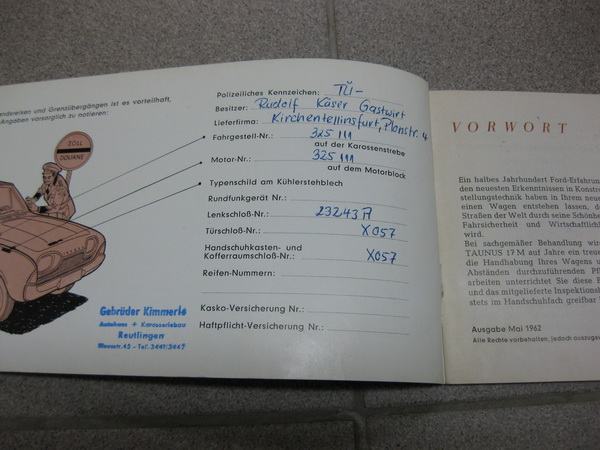 ndereisen und Grenzübergängen ist es vorteilhaft,
Angaben vorsorglich zu notieren:
ZOLL
DOUANE
Polizeiliches Kennzeichen: TÜ-
Besitzer: Rudolf Käser Gastwirt
Lieferfirma: Kirchentellinsfurt, Planstr. 4
Fahrgestell-Nr.: 325 111
auf der Karossenstrebe
Motor-Nr.: 325 111
auf dem Motorblock
Typenschild am Kühlerstehblech
Rundfunkgerät Nr.:
Lenkschloß-Nr.: 23243 A
Türschloß-Nr.: X057
Handschuhkasten- und
Kofferraumschloß-Nr.: X057
Reifen-Nummern:
Kasko-Versicherung Nr.:
Haftpflicht-Versicherung Nr.:
Gebrüder Kimmerle
Autohaus + Karosseriebau
Reutlingen
45 - Tel. 3441/3447
VORWORT
Ein halbes Jahrhundert Ford-Erfahrun
den neuesten Erkenntnissen in Konstru
stellungstechnik haben in Ihrem neue
einen Wagen entstehen lassen, d
Straßen der Welt durch seine Schönhe
Fahrsicherheit und Wirtschaftlich
wird.
Bei sachgemäßer Behandlung wir
TAUNUS 17 M auf Jahre ein treue
die Handhabung Ihres Wagens u
Abständen durchzuführenden Pfl
arbeiten unterrichtet Sie diese B
und das mitgelieferte Inspektions
stets im Handschuhfach greifbar
Ausgabe Mai 1962
Alle Rechte vorbehalten, jedoch auszugsw